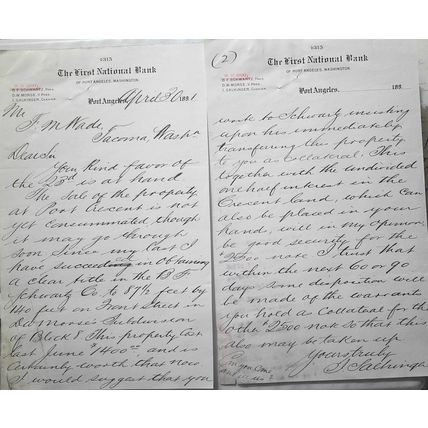 4313
The First National Bank
OF PORT ANGELES, WASHINGTON.
B. F. SCHWARTZ, Pres.
D. W. MORSE, V. Pres.
Port Angeles, April 26 1891
Mr
F. M. Wade,
Tacoma, Washn
Dear Sir
Your kind favor of
the 23d is at hand
The sale of the property
at Port Crescent is not
yet consummated though
it may go through
soon. Since my last I
have succeeded in obtaining
a clear title in The B. F.
Schwartz Co. to 87½ feet by
140 feet on Front Street in
D. W. Morse's Subdivision
of Block 8. This property cost
last June $1400.00 and is
certainly worth that now.
I would suggest that you
(2)
4313
The First National Bank
OF PORT ANGELES, WASHINGTON.
B. F. SCHWARTZ, Pres.
D. W. MORSE, V. Pres.
Port Angeles, 189
write to Schwartz insisting
upon his immediately
transferring this property
to you as collateral. This
together with the undivided
one half interest in the
Crescent land, which can
also be placed in your
hand, will in my opinion
be good security for the
$2500 note I trust that
within the next 60 or 90
days some disposition will
be made of the warrants
you hold as Collateral for the
other $2500 note so that this
also may be taken up
Yours truly